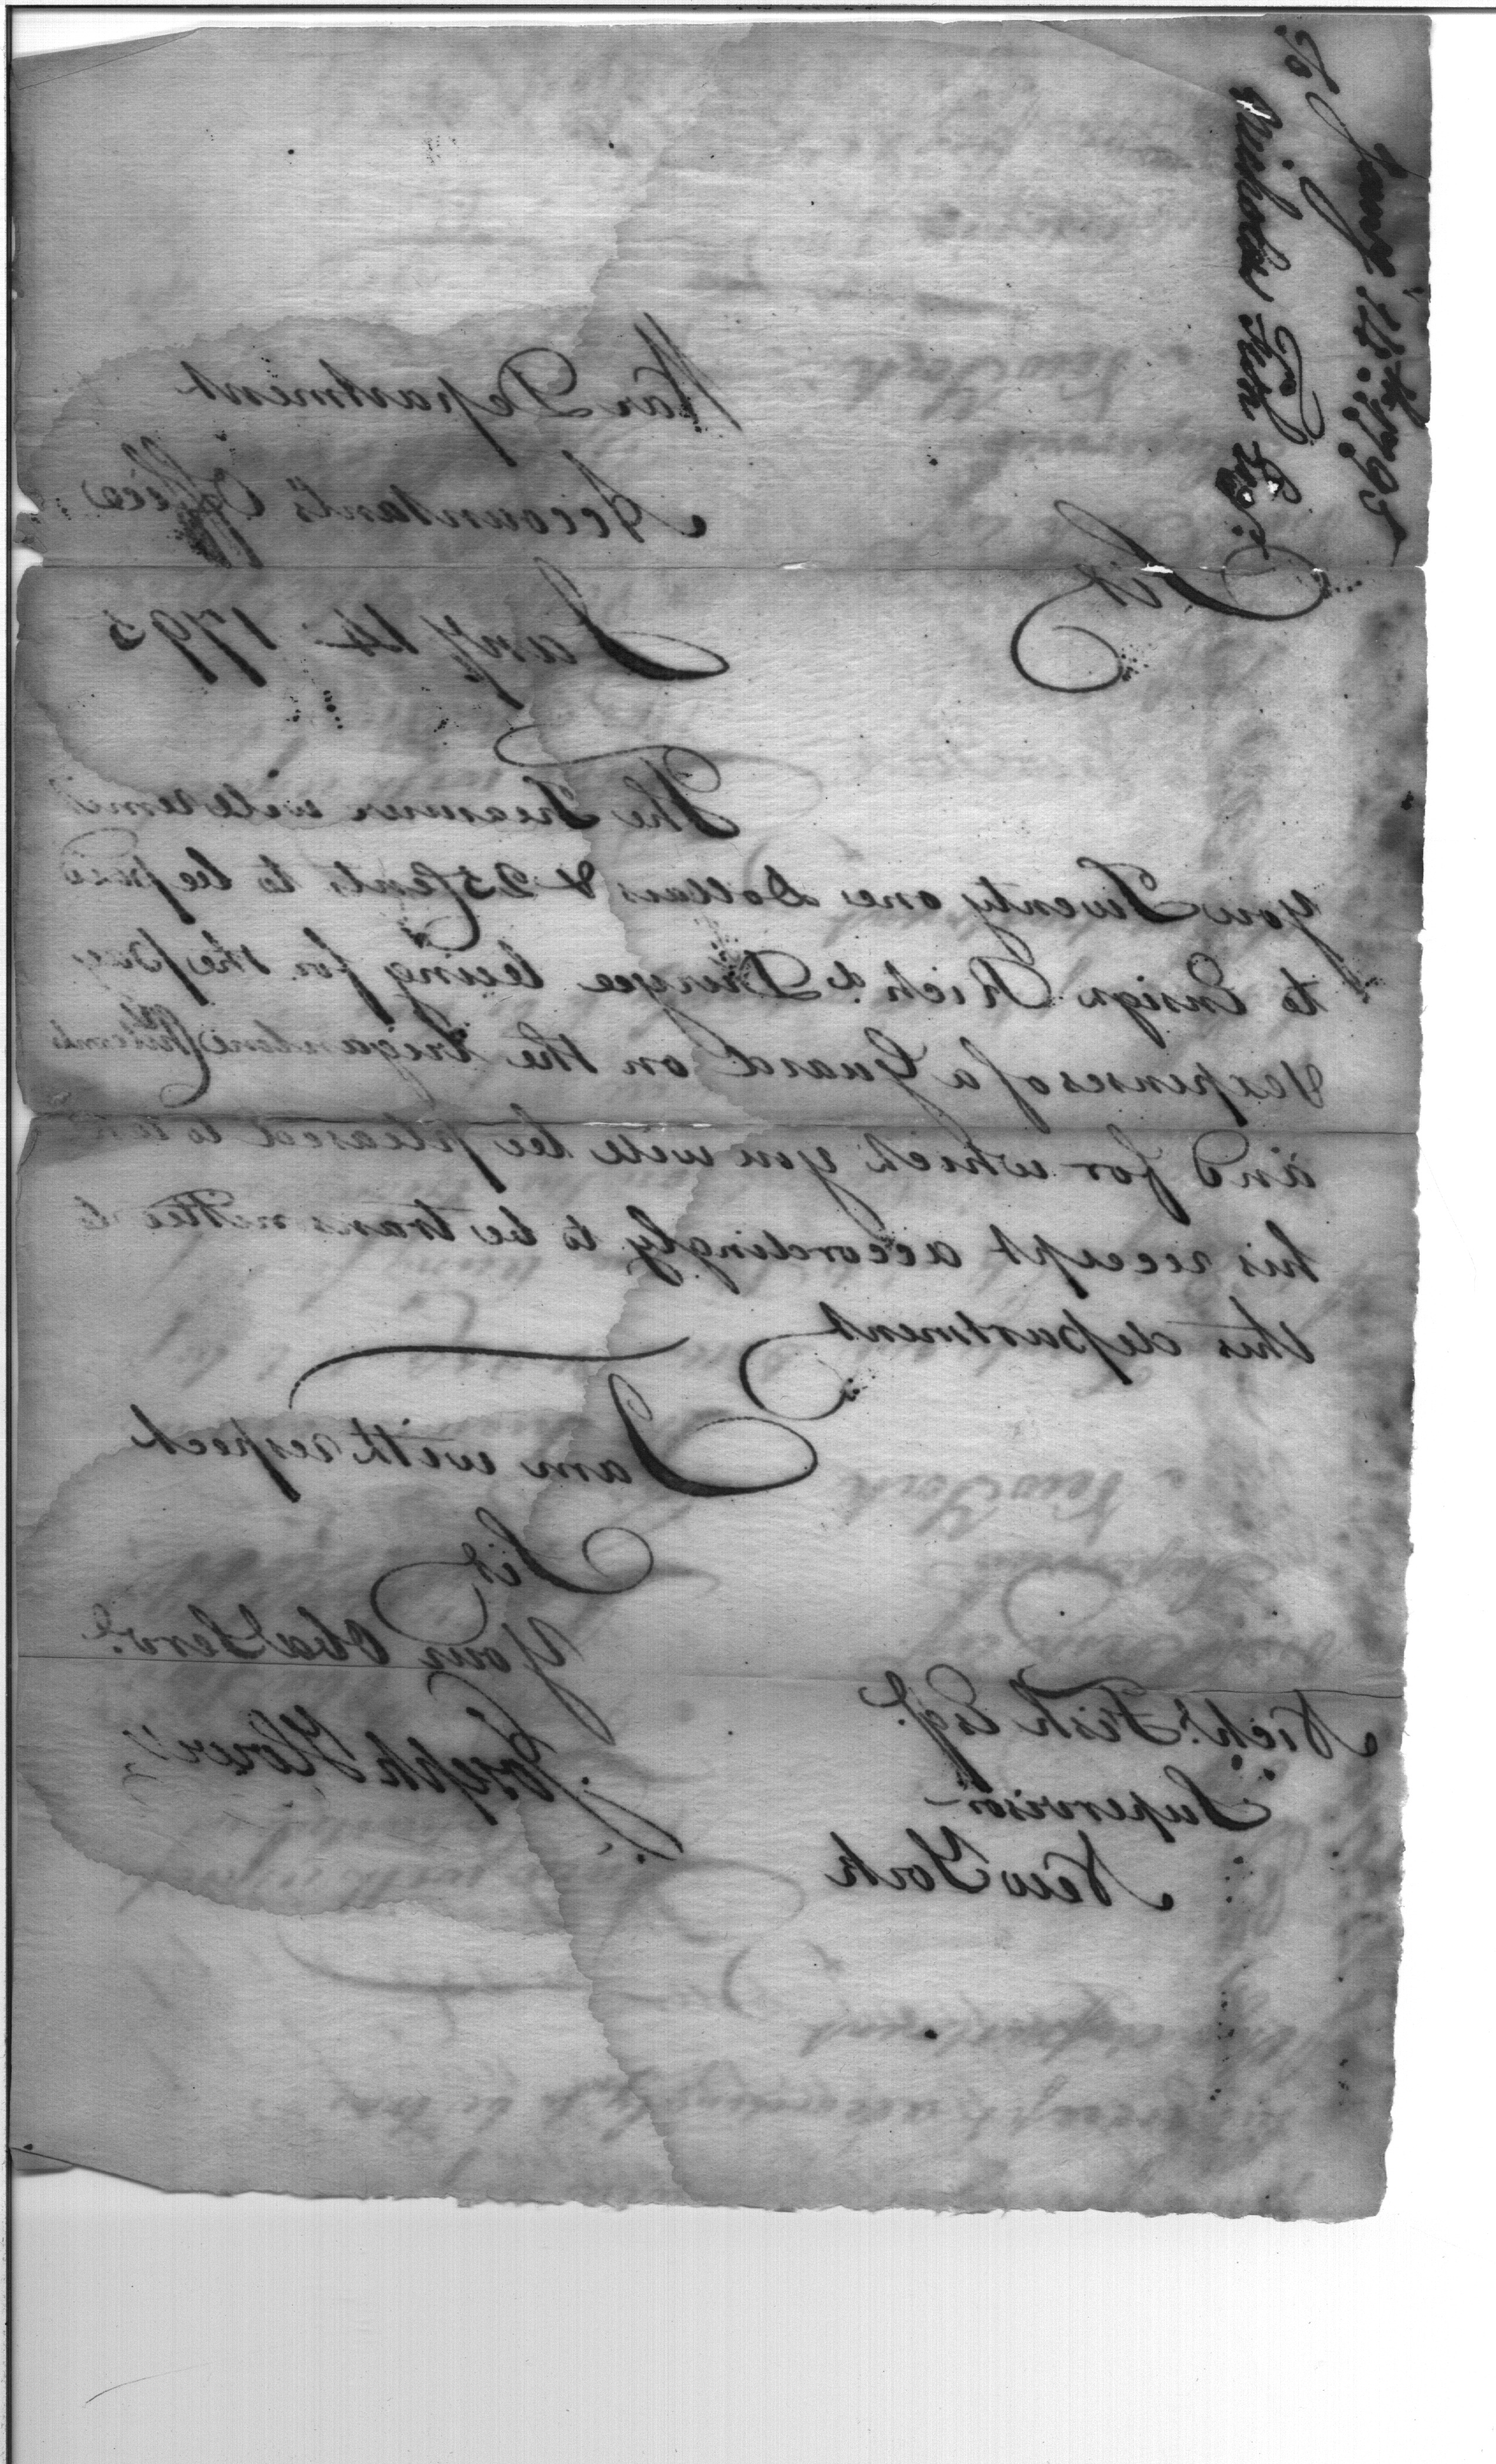 War Department
Accountant's Office
Jany. 14 1795
Sir
The Treasurer will remit
you Twenty one Dollars & 23 Cents to be paid
to Ensign Richd. Duryee being for the pay
& expenses of a Guard on the brigantine
and for which you will be pleased to take
his receipt accordingly to be transmitted to
this department
I am with respect
Sir
Your Obd Servt.
Joseph Howell
Nichs. Fish Esqr.
Supervisor
New York
Jany 14th 1795
To
Nicholas Fish Esqr.
New York